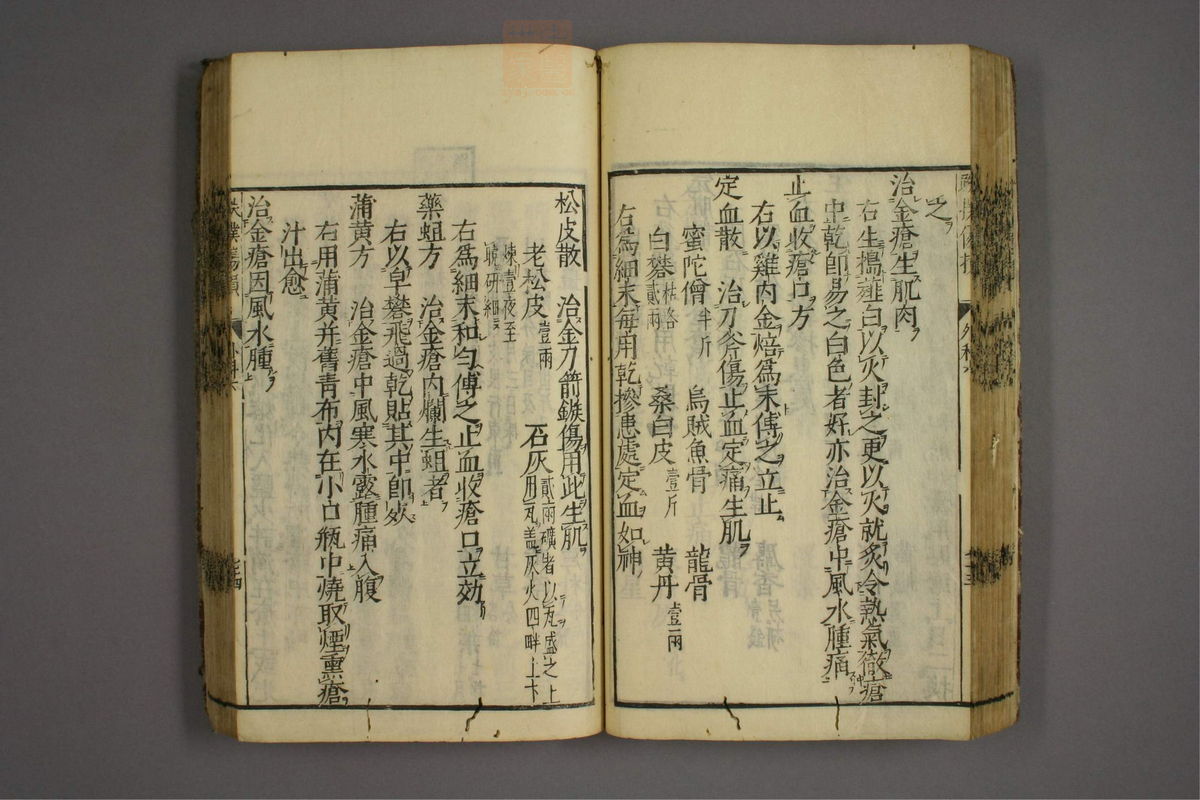 之
治金瘡生肌肉
右生搗薤白以火封之更以火就炙令熱氣徹瘡
中乾即易之白色者好亦治金瘡中風水腫痛
止血收瘡口方
右以雞內金焙爲末傅之立止
定血散 治刀斧傷止血定痛生肌
蜜陀僧半斤 烏賊魚骨 龍骨
白礬枯各貳兩 桑白皮壹斤 黃丹壹兩
右爲細末每用乾摻患處定血如神
松皮散 治金刀箭鏃傷用此生肌
老松皮壹兩 石灰貳兩礦者以瓦盛之上用瓦盖灰火四畔上下
煉壹夜至曉研細
右爲細末和勻傅之止血收瘡口立効
藥蛆方 治金瘡內爛生蛆者
右以皁礬飛過乾貼其中即死
蒲黃方 治金瘡中風寒水露腫痛入腹
右用蒲黃并舊青布內在小口瓶中燒取煙熏瘡
汁出愈
治金瘡因風水腫